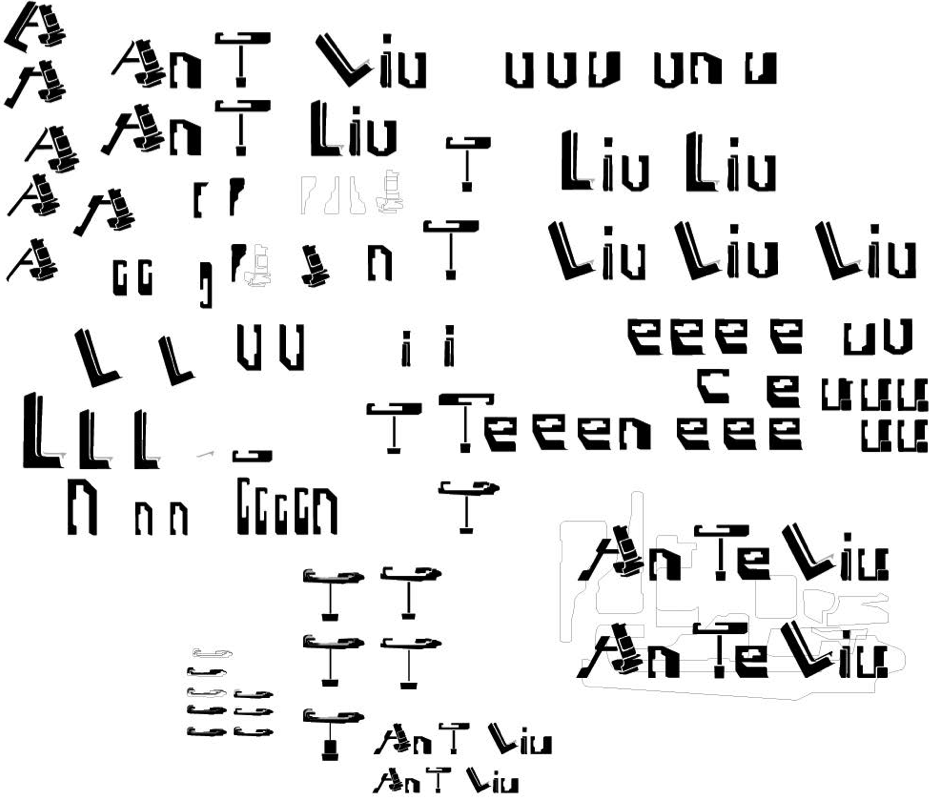 A
A AnT Liu u u u u n u
A AnT Liu T Liu Liu
A A
A n T Liu Liu Liu
L L u u i i e e e e u u
c e u u u
L L L T T e e e n e e e u u
n n n n T
AnTe Liu
AnTe Liu
AnT Liu
AnT Liu